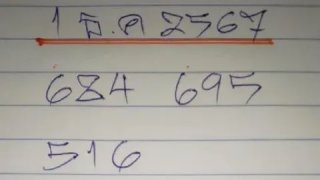 1 ธ.ค 2567
684 695
516